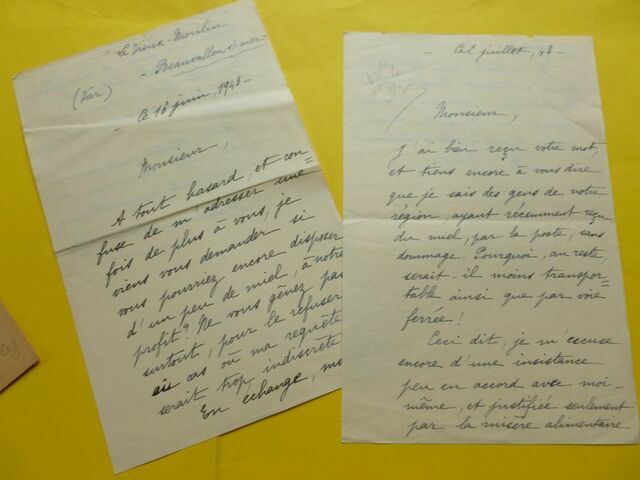 "Le Vieux-Moulin"
- Beauvallon s/mer -
(Var)
- Ce 18 juin, 1943 -
Monsieur,
A tout hasard, et con
fuse de m'adresser une
fois de plus à vous, je
viens vous demander si
vous pourriez encore disposer
d'un peu de miel, à notre
profit? Ne vous gênez pas
surtout, pour le refuser
au cas où ma requête
serait trop indiscrète
En échange,
- Ce 2 juillet, 43 -
Monsieur,
J'ai bien reçu votre mot,
et tiens encore à vous dire
que je sais des gens de notre
région, ayant récemment reçu
du miel, par la poste, sans
dommage. Pourquoi, au reste,
serait-il moins transpor=
table ainsi que par voie
ferrée!
Ceci dit, je m'excuse
encore d'une insistance
peu en accord avec moi-
même, et justifiée seulement
par la misère alimentaire